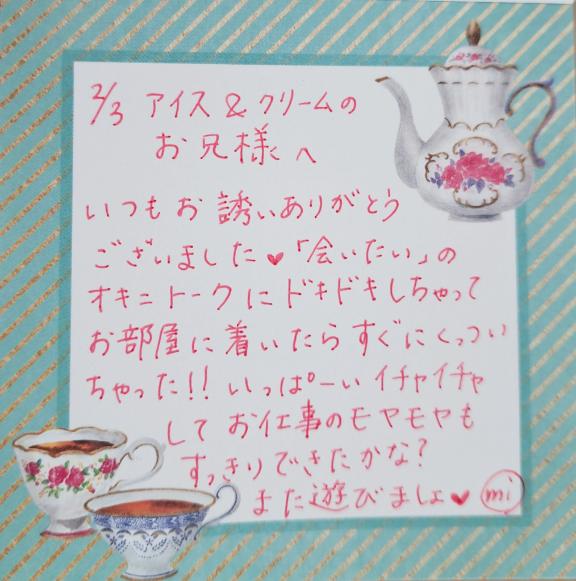 2/3 アイス&クリームの
お兄様へ
いつもお誘いありがとう
ございました♥「会いたい」の
オキニトークにドキドキしちゃって
お部屋に着いたらすぐにくっつい
ちゃった!!いっぱーいイチャイチャ
してお仕事のモヤモヤも
すっきりできたかな?
また遊びましょ♥ mi